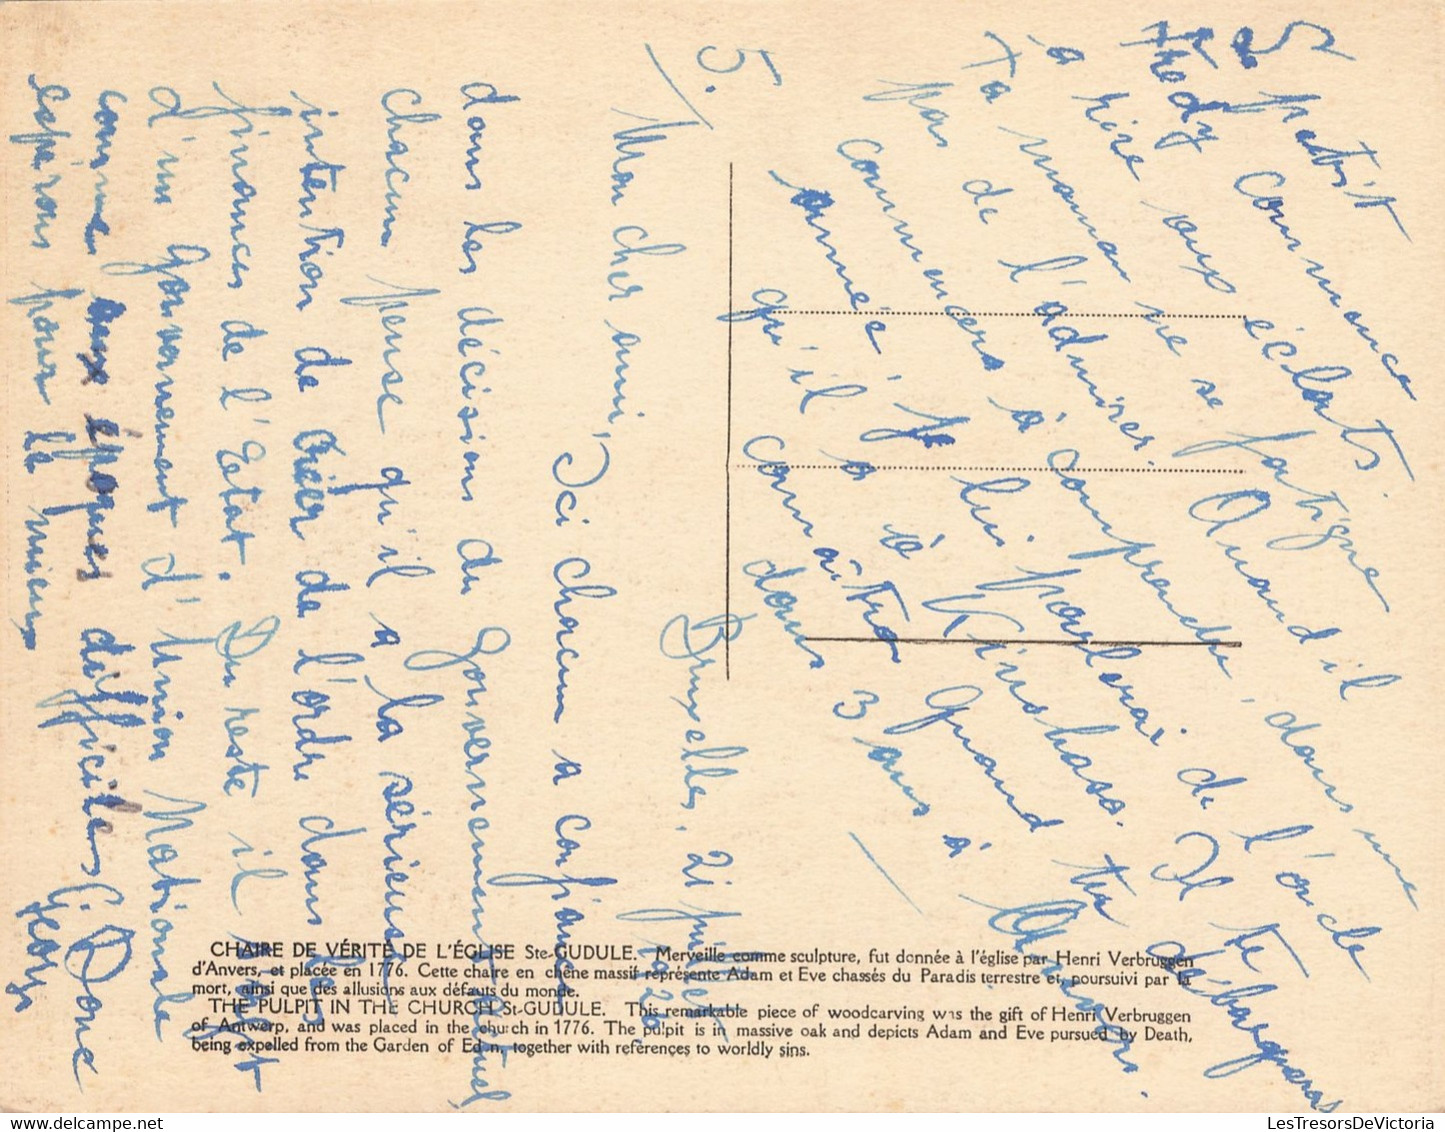 5.
Bruxelles, 21 juillet 1926.
Mon cher ami,
Ici chacun a confiance
dans les décisions du Gouvernement actuel
chacun pense qu'il a la sérieuse
intention de créer de l'ordre dans les
finances de l'Etat. Du reste il est
d'un Gouvernement d'Union Nationale
comme aux époques difficiles. Donc
espérons pour le mieux
Georges
petit
Fredy commence
à rire aux éclats.
Ta maman ne se fatigue
pas de l'admirer. Quand il
commencera à comprendre, dans une
année je lui parlerai de l'oncle
qu'il a à Kinshasa. Il te
connaîtra quand tu débarqueras
dans 3 ans à Anvers.
CHAIRE DE VÉRITÉ DE L'ÉGLISE Ste-GUDULE. Merveille comme sculpture, fut donnée à l'église par Henri Verbruggen
d'Anvers, et placée en 1776. Cette chaire en chêne massif représente Adam et Eve chassés du Paradis terrestre et, poursuivi par la
mort, ainsi que des allusions aux défauts du monde.
THE PULPIT IN THE CHURCH St-GUDULE. This remarkable piece of woodcarving was the gift of Henri Verbruggen
of Antwerp, and was placed in the church in 1776. The pulpit is in massive oak and depicts Adam and Eve pursued by Death,
being expelled from the Garden of Eden, together with references to worldly sins.
LesTresorsDeVictoria